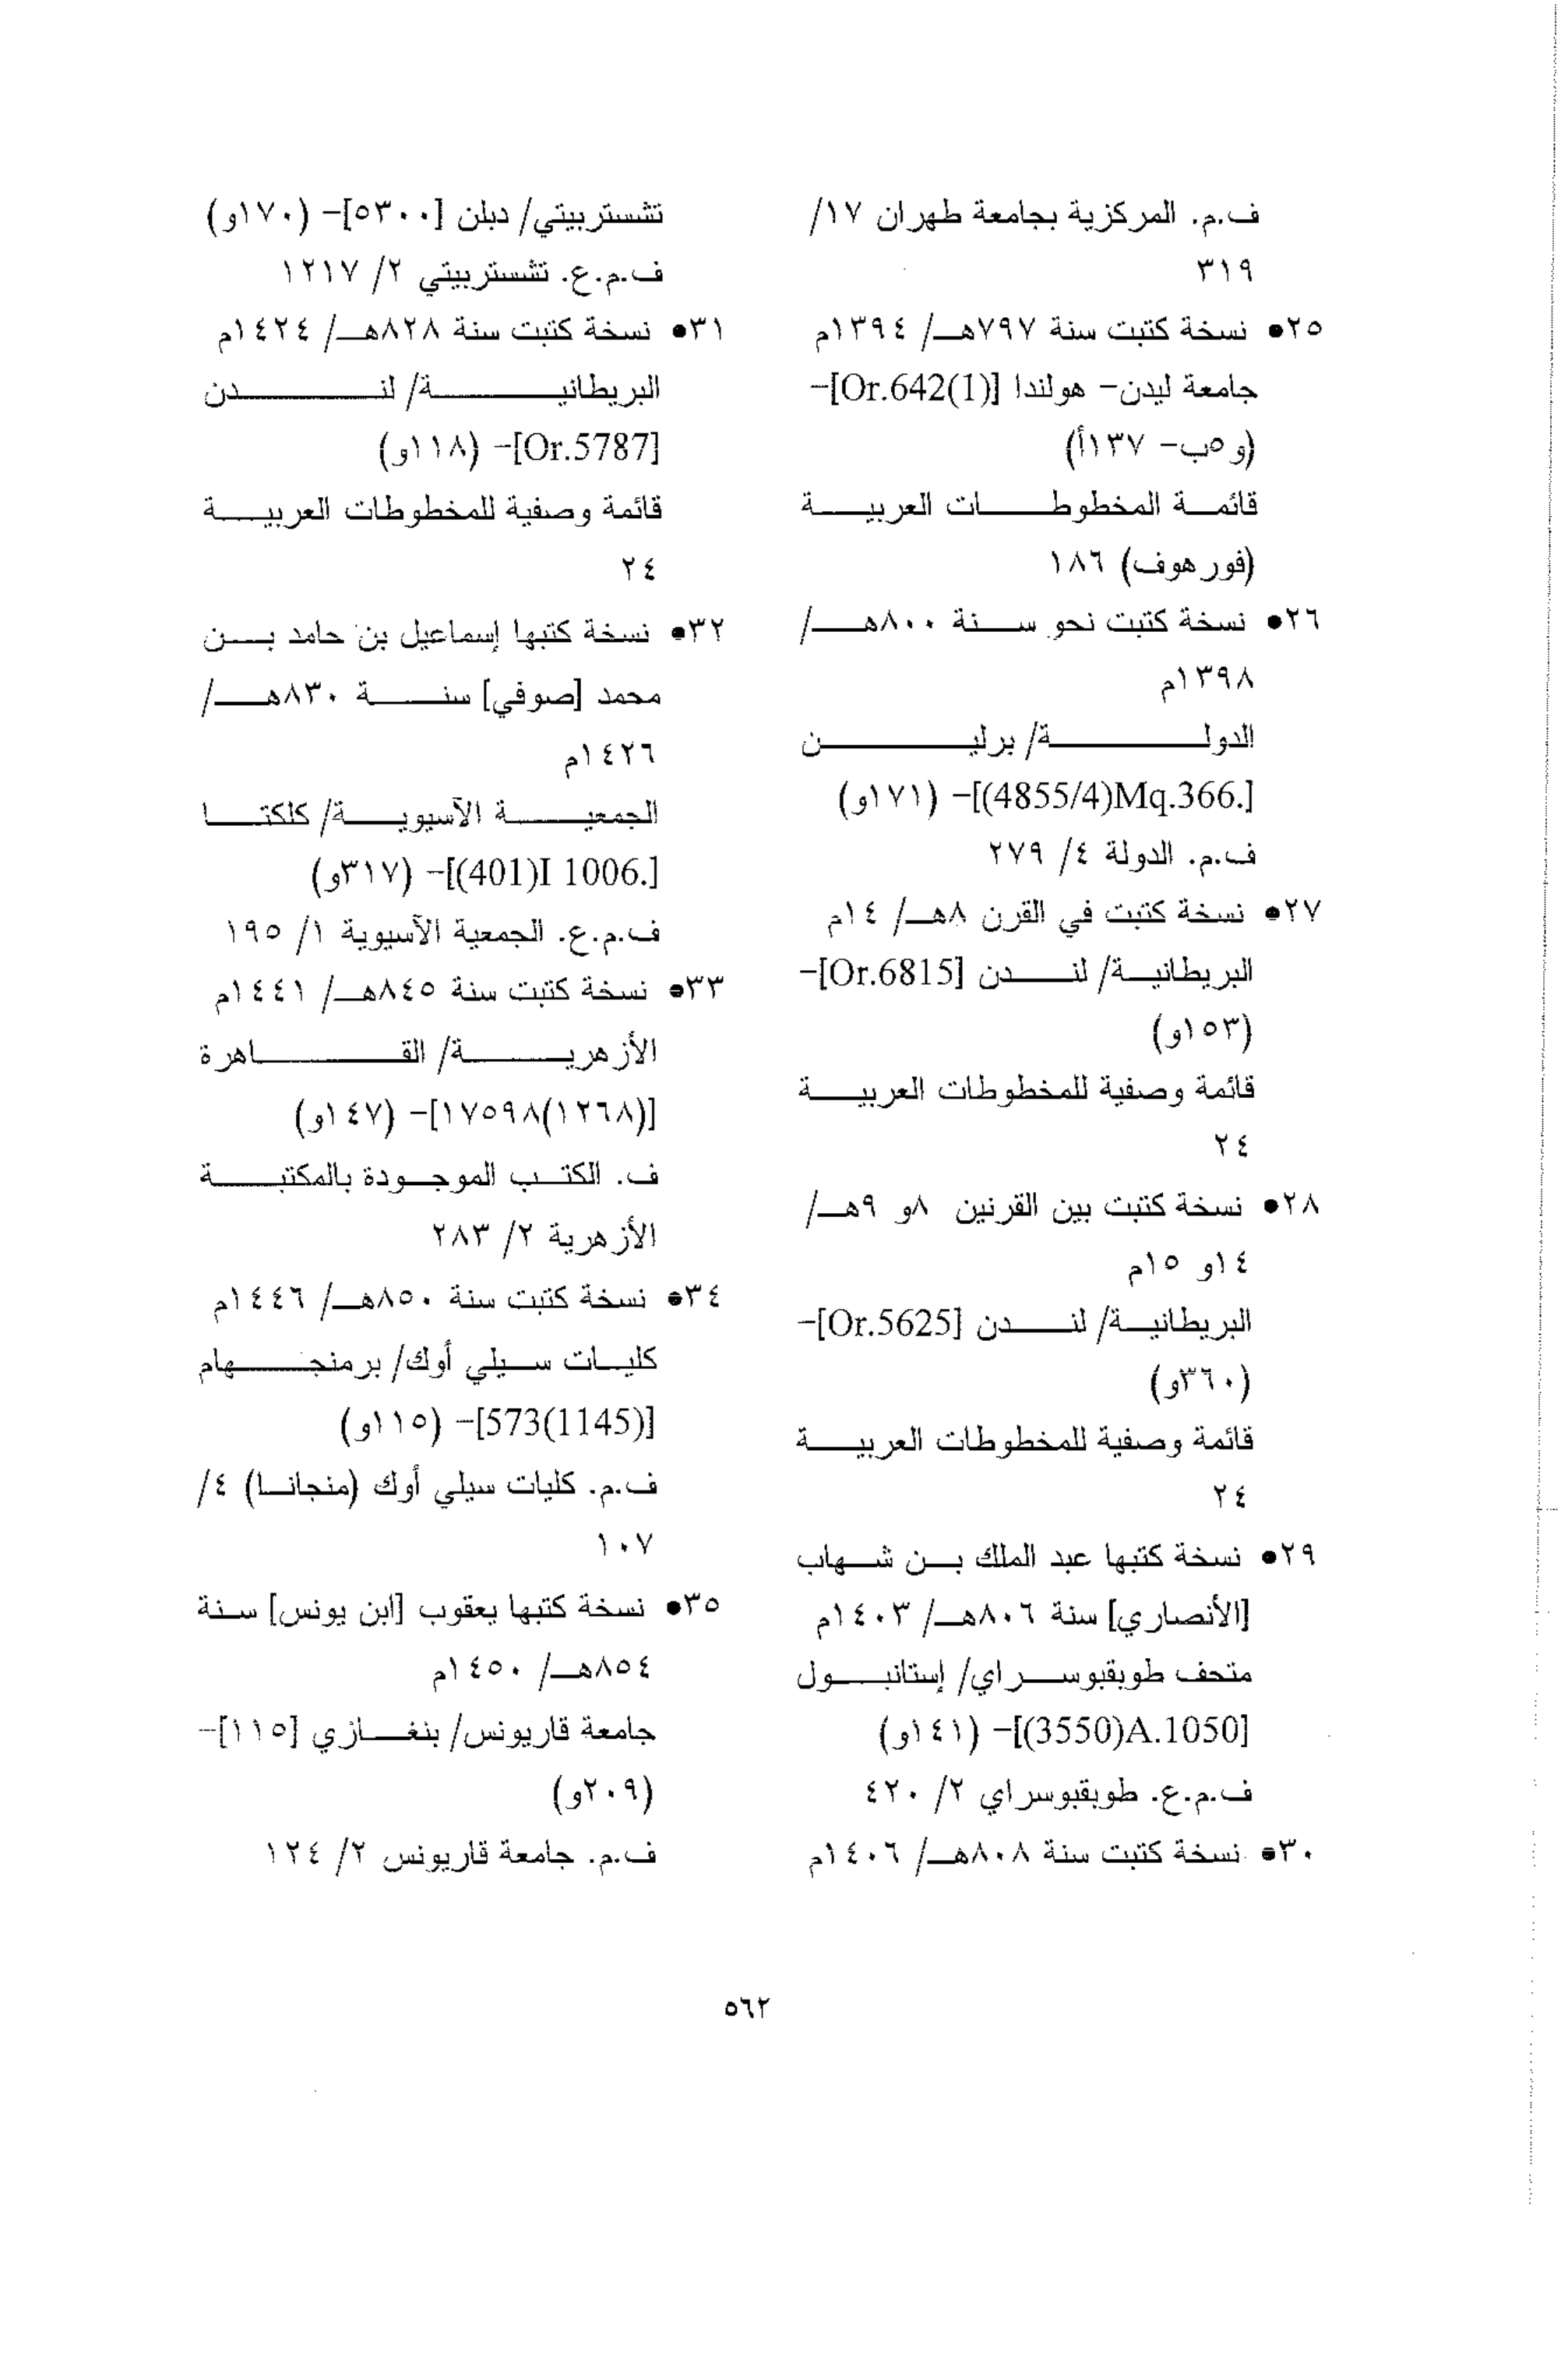 ف.م. المركزية بجامعة طهران ١٧/
٣١٩
٢٥• نسخة كتبت سنة ٧٩٧هـ/ ١٣٩٤م
جامعة ليدن- هولندا [Or.642(1)]-
(و٥ب- ١٣٧أ)
قائمة المخطوطات العربية
(فورهوف) ١٨٦
٢٦• نسخة كتبت نحو سنة ٨٠٠هـ/
١٣٩٨م
الدولة/ برلين
[(4855/4)Mq.366.]- (١٧١و)
ف.م. الدولة ٤/ ٢٧٩
٢٧• نسخة كتبت في القرن ٨هـ/ ١٤م
البريطانية/ لندن [Or.6815]-
(١٥٣و)
قائمة وصفية للمخطوطات العربية
٢٤
٢٨• نسخة كتبت بين القرنين ٨و ٩هـ/
١٤و ١٥م
البريطانية/ لندن [Or.5625]-
(٣٦٠و)
قائمة وصفية للمخطوطات العربية
٢٤
٢٩• نسخة كتبها عبد الملك بن شهاب
[الأنصاري] سنة ٨٠٦هـ/ ١٤٠٣م
متحف طوبقبوسراي/ إستانبول
[(3550)A.1050]- (١٤١و)
ف.م.ع. طوبقبوسراي ٢/ ٤٢٠
٣٠• نسخة كتبت سنة ٨٠٨هـ/ ١٤٠٦م
تشستربيتي/ دبلن [٥٣٠٠]- (١٧٠و)
ف.م.ع. تشستربيتي ٢/ ١٢١٧
٣١• نسخة كتبت سنة ٨٢٨هـ/ ١٤٢٤م
البريطانية/ لندن
[Or.5787]- (١١٨و)
قائمة وصفية للمخطوطات العربية
٢٤
٣٢• نسخة كتبها إسماعيل بن حامد بن
محمد [صوفي] سنة ٨٣٠هـ/
١٤٢٦م
الجمعية الآسيوية/ كلكتا
[(401)I 1006.]- (٣١٧و)
ف.م.ع. الجمعية الآسيوية ١/ ١٩٥
٣٣• نسخة كتبت سنة ٨٤٥هـ/ ١٤٤١م
الأزهرية/ القاهرة
[(١٢٦٨)١٧٥٩٨]- (١٤٧و)
ف. الكتب الموجودة بالمكتبة
الأزهرية ٢/ ٢٨٣
٣٤• نسخة كتبت سنة ٨٥٠هـ/ ١٤٤٦م
كليات سيلي أوك/ برمنجهام
[573(1145)]- (١١٥و)
ف.م. كليات سيلي أوك (منجانا) ٤/
١٠٧
٣٥• نسخة كتبها يعقوب [ابن يونس] سنة
٨٥٤هـ/ ١٤٥٠م
جامعة قاريونس/ بنغازي [١١٥]-
(٢٠٩و)
ف.م. جامعة قاريونس ٢/ ١٢٤
٥٦٢